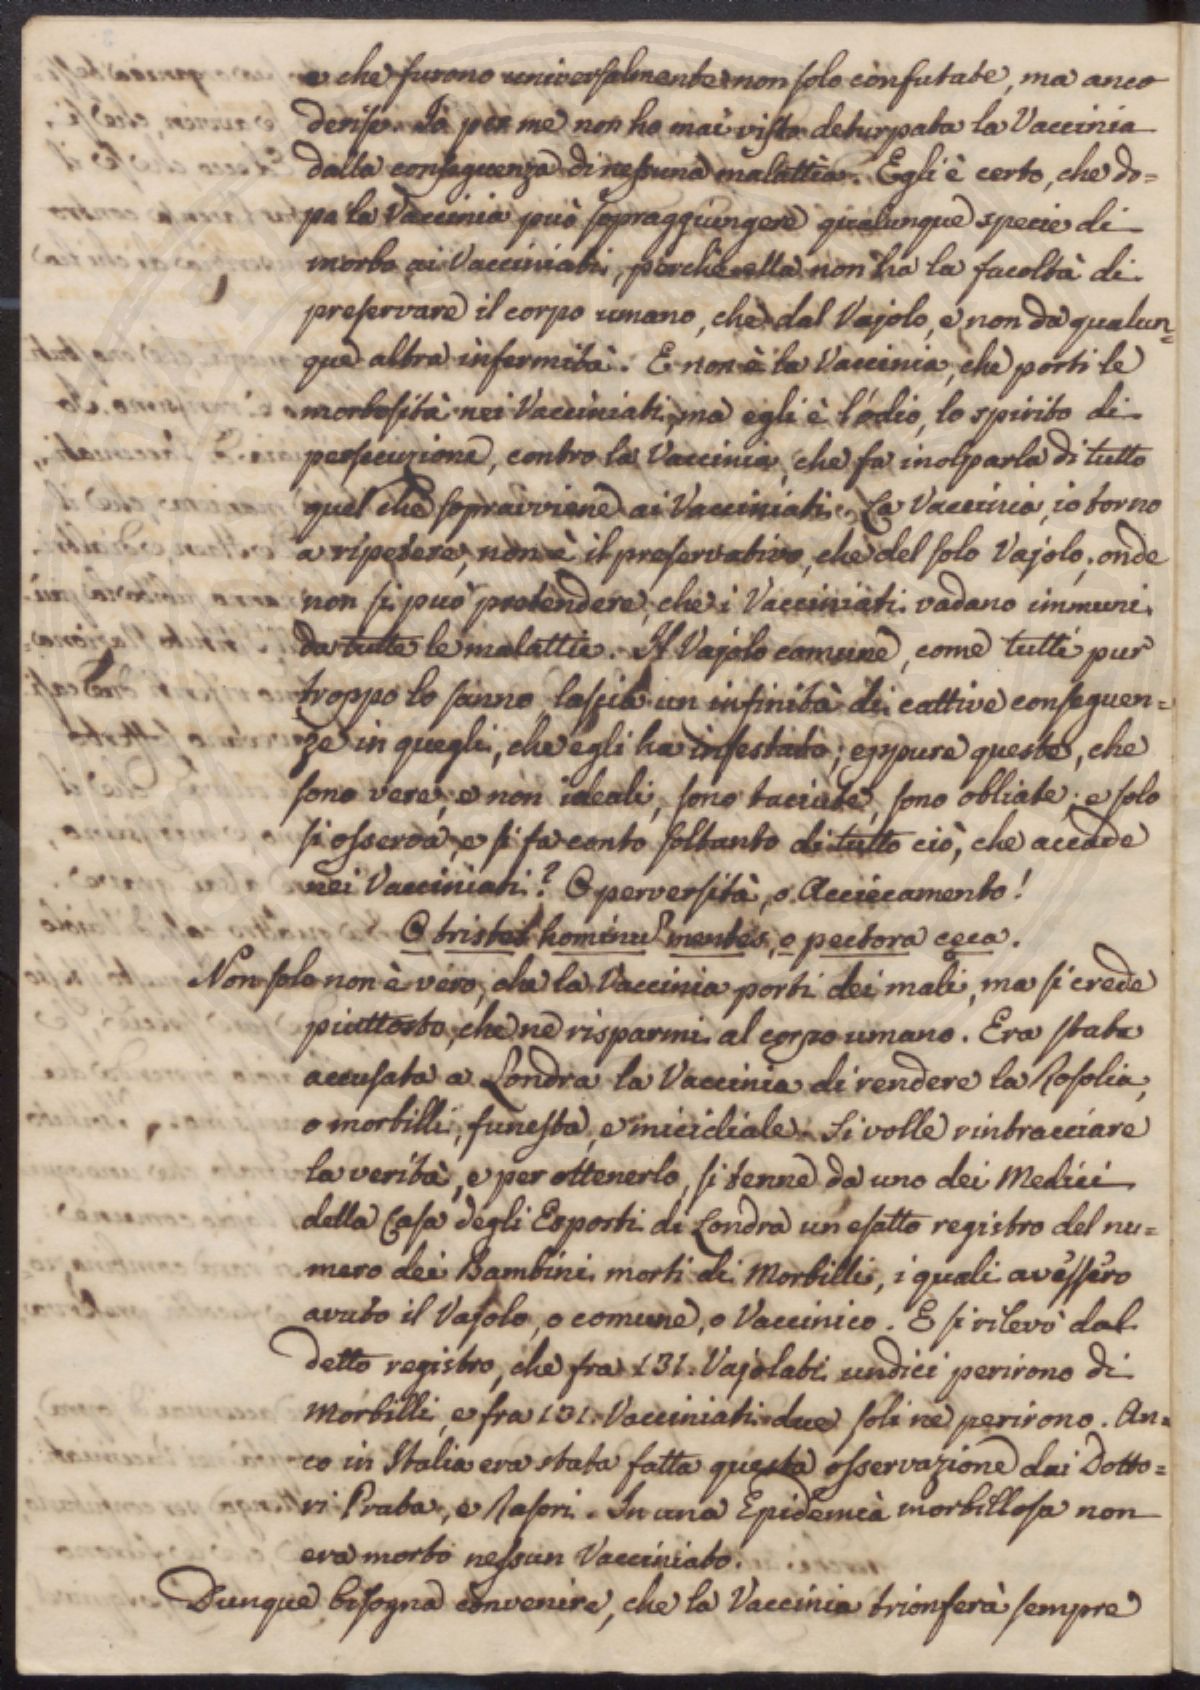 e che furono universalmente non solo confutate, ma anco
derise. Io per me non ho mai visto deturpata la Vaccinia
dalla conseguenza di nessuna malattia. Egli è certo, che do=
po la Vaccinia può sopraggiungere qualunque specie di
morbo ai Vacciniati, perchè ella non ha la facoltà di
preservare il corpo umano, che dal Vajolo, e non da qualun=
que altra infermità. E non è la Vaccinia, che porti le
morbosità nei Vacciniati, ma egli è l'odio, lo spirito di
persecuzione, contro la Vaccinia, che fa incolparla di tutto
quel che sopravviene ai Vacciniati. La Vaccinia, io torno
a ripetere, non è il preservativo, che del solo Vajolo; onde
non si può pretendere, che i Vacciniati vadano immuni
da tutte le malattie. Il Vajolo comune, come tutti pur
troppo lo sanno lascia un infinità di cattive conseguen=
ze in quegli, che egli ha infestato; eppure queste, che
sono vere, e non ideali, sono taciute, sono obliate; e solo
si osserva, e si fa conto soltanto di tutto ciò, che accade
nei Vacciniati? O perversità, o Acciecamento!
O tristes hominu mentes, o pectora ceca.
Non solo non è vero, che la Vaccinia porti dei mali, ma si crede
piuttosto, che ne risparmi al corpo umano. Era stata
accusata a Londra la Vaccinia di rendere la Rosolia,
o morbilli, funesta, e micidiale. Si volle rintracciare
la verità, e per ottenerlo, si tenne da uno dei Medici
della Casa degli Esposti di Londra un esatto registro del nu=
mero dei Bambini morti di Morbilli, i quali avessero
avuto il Vajolo, o comune, o Vaccinico. E si rilevò dal
detto registro, che fra 131. Vajolati undici perirono di
Morbilli, e fra 131. Vacciniati due soli ne perirono. An=
co in Italia era stata fatta questa osservazione dai Dotto=
ri Prata, e Rasori. In una Epidemia morbillosa non
era morto nessun Vacciniato.
Dunque bisogna convenire, che la Vaccinia trionferà sempre